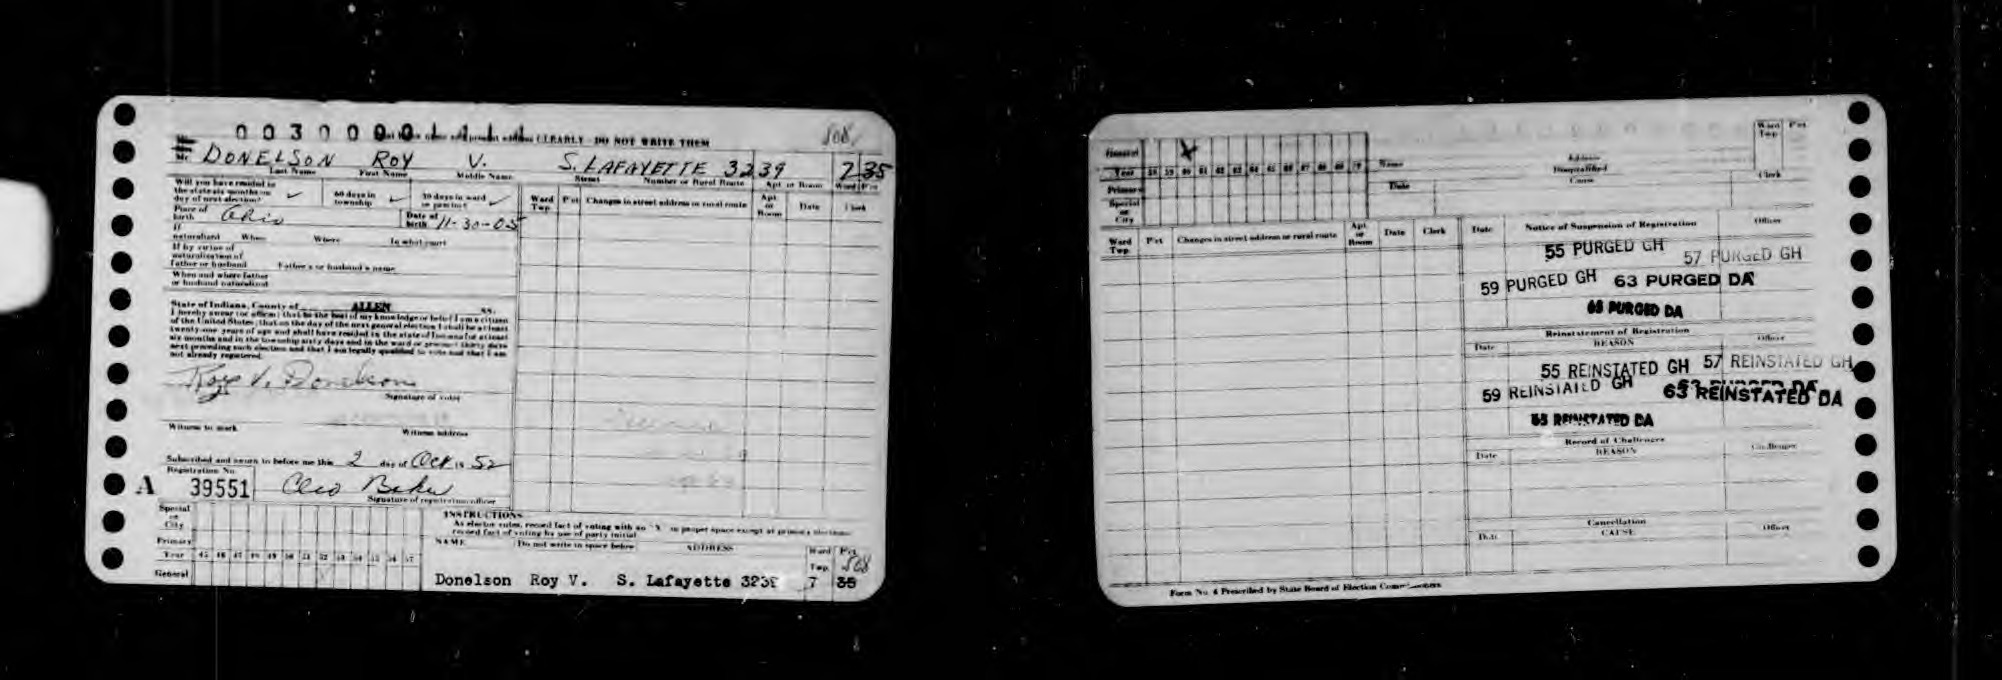 0 0 3 0 0 0 0 1 1 1 CLEARLY - DO NOT WRITE THEM 508
Mr. DONELSON ROY V. S. LAFAYETTE 3239 7 35
Last Name First Name Middle Name Street Number or Rural Route Apt. or Room Ward Pct
Will you have resided in the state six months on day of next election? ✓ 60 days in township ✓ 30 days in ward or precinct ✓
Ward Twp. Pct Changes in street address or rural route Apt. or Room Date Clerk
Place of birth Ohio Date of birth 11-30-05
If naturalized When Where In what court
If by virtue of naturalization of father or husband Father's or husband's name
When and where father or husband naturalized
State of Indiana, County of ALLEN SS.
I hereby swear (or affirm) that to the best of my knowledge or belief I am a citizen
of the United States; that on the day of the next general election I shall be at least
twenty-one years of age and shall have resided in the state of Indiana for at least
six months and in the township sixty days and in the ward or precinct thirty days
next preceding such election and that I am legally qualified to vote and that I am
not already registered.
Roy V. Donelson
Signature of voter
Witness to mark Witness address
Subscribed and sworn to before me this 2 day of Oct. 19 52
Registration No.
A 39551 Cleo Baker
Signature of registration officer
Special or City
Primary
Year 45 46 47 48 49 50 51 52 53 54 55 56 57
General
INSTRUCTIONS
As elector votes, record fact of voting with an "X" in proper space except at primary elections
record fact of voting by use of party initial
NAME Do not write in space below ADDRESS Ward Twp. Pct
508
Donelson Roy V. S. Lafayette 3239 7 35
General X
Year 58 59 60 61 62 63 64 65 66 67 68 69 70
Primary
Special or City
Name Address Ward Twp. Pct
Disqualified
Date Cause Clerk
Ward Twp. Pct Changes in street address or rural route Apt. or Room Date Clerk
Date Notice of Suspension of Registration Officer
55 PURGED GH 57 PURGED GH
59 PURGED GH 63 PURGED DA
65 PURGED DA
Reinstatement of Registration
Date REASON Officer
55 REINSTATED GH 57 REINSTATED GH
59 REINSTATED GH 63 REINSTATED DA
65 REINSTATED DA
Record of Challenges
Date REASON Challenger
Cancellation
Date CAUSE Officer
Form No. 4 Prescribed by State Board of Election Commissioners